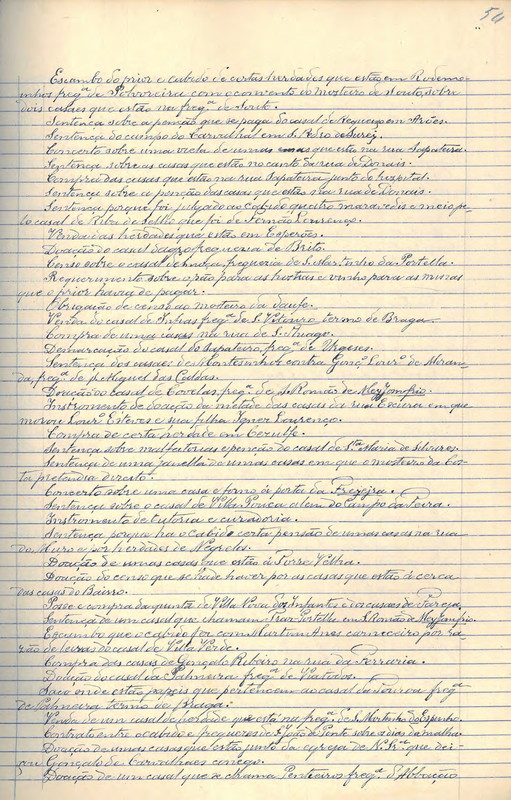 54
Escambo do prior e cabido de certas herdades que estão em Rodemo-
inhos freg.ª de Polvoreira com o convento do mosteiro de Souto, sobre
dois casais que estão na freg.ª de Souto.
Sentença sobre a penção que se paga do casal de Requeixo em Arões.
Sentença do campo do Carvalhal em S. Pedro
Concerto sobre uma viela de umas casas que está na rua Sapateira.
Sentença sobre as casas que estão no canto da rua de Donais.
Compra das casas que estão na rua Sapateira junto do hospital.
Sentença sobre a penção das casas que estão na rua de Donais.
Sentença porque foi julgado ao cabido quatro maravedis e meio pe-
lo casal de Riba de Selho que foi de Romão Lourenço.
Venda das herdades que estão em Esperões.
Doação do casal da freguesia de Brito.
Censo sobre o casal de freguesia de S. Martinho da Portella.
Requerimento sobre o pão para as hostias e vinho para as missas
que o prior havia de pagar.
Obrigação de censo ao mosteiro da Costa.
Venda do casal de Infias freg.ª de S. Vitouro termo de Braga.
Compra de umas casas na rua de S. Thiago.
Demarcação do casal do Sapateiro, freg.ª de Urgeses.
Sentença dos casaes de Montesinhos contra Gonç.º Lour.º de Miran-
da, freg.ª de S. Miguel das Caldas.
Doação do casal de Covelas freg.ª de S. Romão de Mezjomfrio.
Instromento de doação da metade das casas da rua Escura em que
morou Lour.º Esteves e sua filha Ignez Lourenço.
Compra de certa herdade em
Sentença sobre malfeitorias e penção do casal de S.ta Maria de Silvares.
Sentença de uma janella de umas casas em que o mosteiro da Cos-
ta pretendia direito.
Concerto sobre uma casa e forno á porta da Frezeira.
Sentença sobre o casal de Villa Pouca alem do Campo da Feira.
Instromento de tutoria e curadoria.
Sentença porque ha o cabido certa pensão de umas casas na rua
do Muro e por herdades de Negrelos.
Doação de umas casas que estão á Torre Velha.
Doação do censo que se hade haver por as casas que estão á cerca
das casas do Bairro.
Posse e compra da quinta de Villa Nova dos Infantes e dos casaes de Fareja.
Sentença de um casal que chamam Traz Portella em S. Romão de Mezjamfrio.
Escambo que o cabido fez com Martim Anes carniceiro por ra-
zão de leiras do casal de Villa Verde.
Compra das casas de Gonçalo Ribeiro na rua da Ferraria.
Doação do casal da Palmeira freg.ª de Viatodos.
Saco onde estão papeis que pertencem ao casal de freg.ª
de Palmeira termo de Braga.
Venda de um casal de herdade que está na freg.ª de S. Martinho do Espinho.
Contrato entre o cabido e freguezes de S. João de Ponte sobre os dias da malha.
Doação de umas casas que estão junto da egreja de N. Sr.ª que dei-
xou Gonçalo de Carvalhaes conego.
Doação de um casal que se chama Penteeiros freg.ª d'Abbação